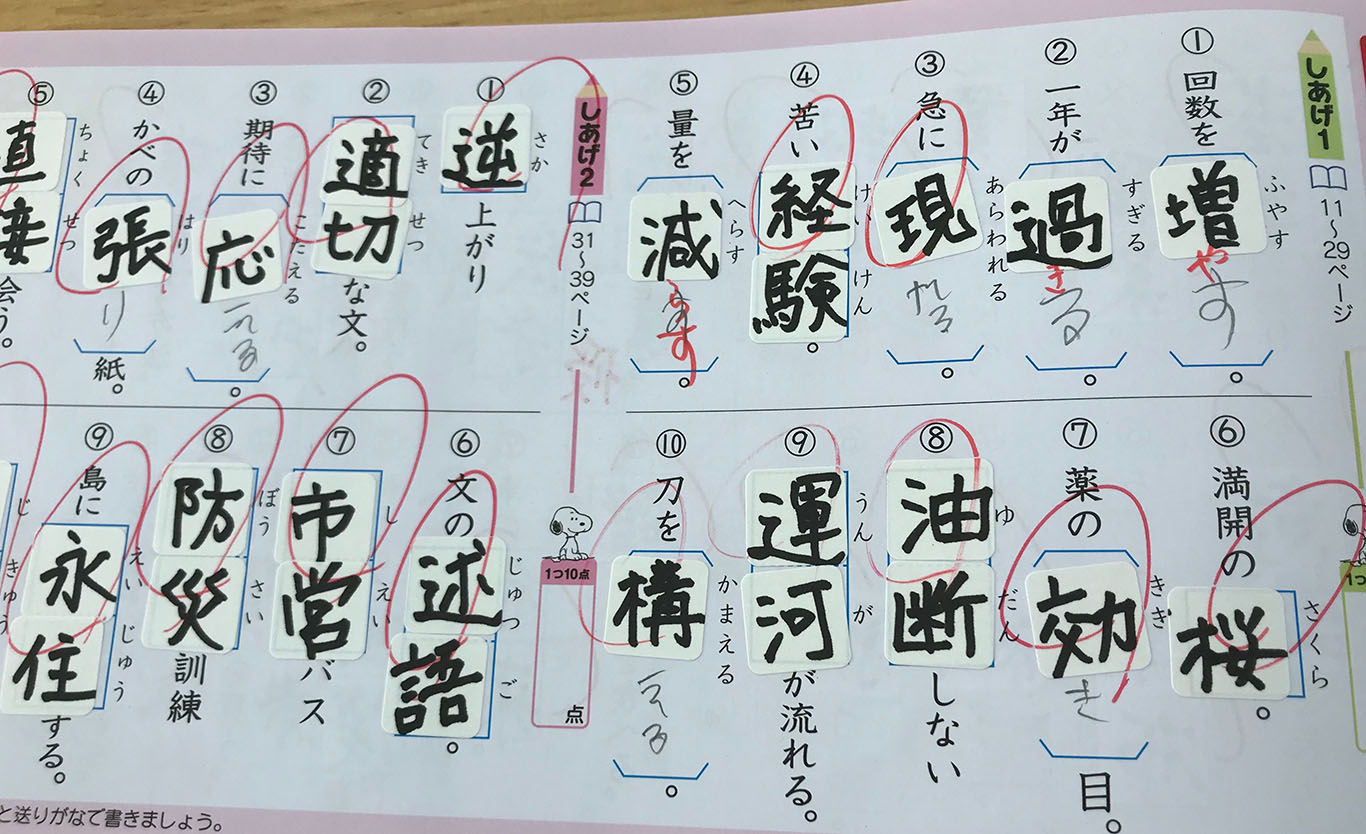 しあげ1
11〜29ページ
① 回数を増やす。
ふやす
② 一年が過ぎる。
すぎる
③ 急に現れる。
あらわれる
④ 苦い経験。
けい けん
⑤ 量を減らす。
へらす
⑥ 満開の桜。
さくら
⑦ 薬の効き目。
きき
⑧ 油断しない
ゆ だん
⑨ 運河が流れる。
うん が
⑩ 刀を構える。
かまえる
しあげ2
31〜39ページ
1つ10点
点
① 逆上がり
さか
② 適切な文。
てき せつ
③ 期待に応える。
こたえる
④ かべの張り紙。
はり
⑤ 直接会う。
ちょく せつ
⑥ 文の述語。
じゅつ ご
⑦ 市営バス
し えい
⑧ 防災訓練
ぼう さい
⑨ 島に永住する。
えい じゅう
じ きゅう
と送りがなで書きましょう。